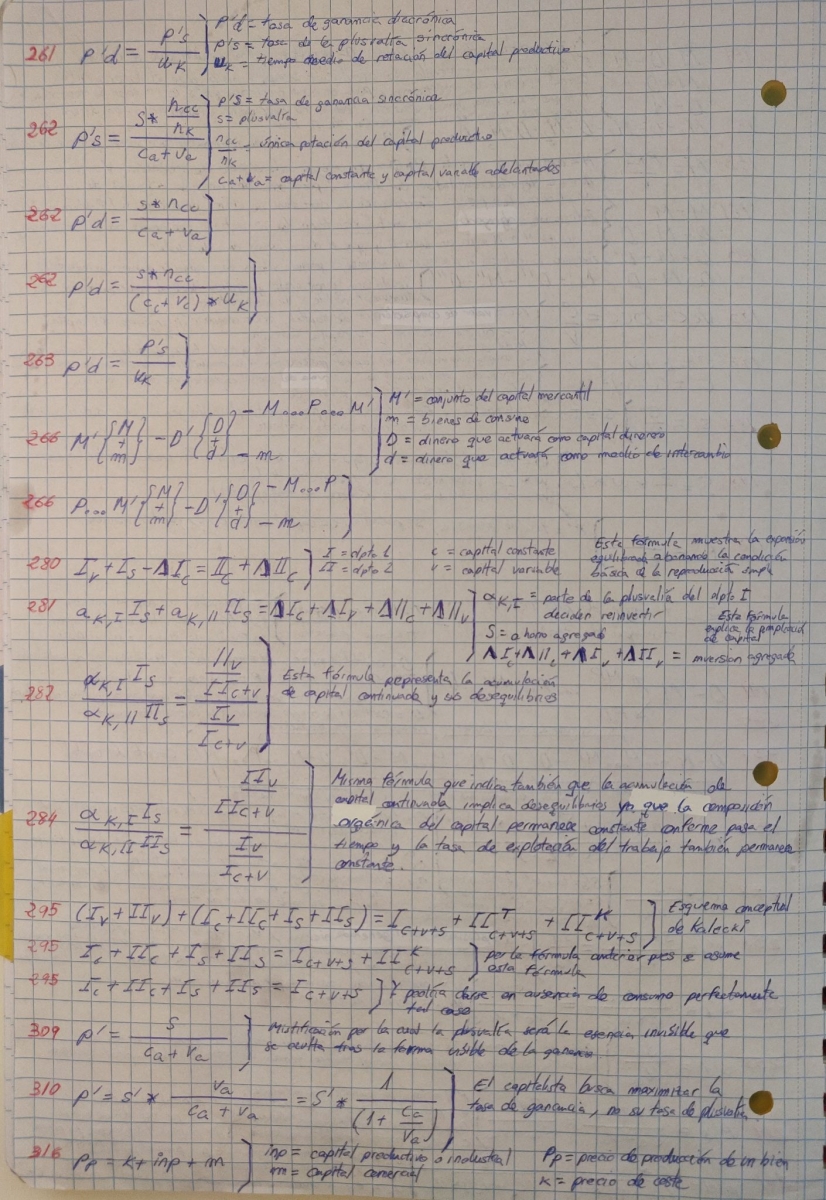 261 P'd = P's / u_K ] P'd = tasa de ganancia diacrónica
P's = tasa de la plusvalía sincrónica
u_K = tiempo medio de rotación del capital productivo
262 P's = (s * n_cc / n_K) / (c_a + v_a) ] P's = tasa de ganancia sincrónica
s = plusvalía
n_cc / n_K = única rotación del capital productivo
c_a + v_a = capital constante y capital variable adelantados
262 P'd = s * n_cc / (c_a + v_a) ]
262 P'd = s * n_cc / ((c_c + v_c) * u_K) ]
263 P'd = P's / u_K ]
266 M' { M + m } - D' { D + d } - M...P...M' - m ] M' = conjunto del capital mercantil
m = bienes de consumo
D = dinero que actuará como capital dinero
d = dinero que actuará como medio de intercambio
266 P...M' { M + m } - D' { D + d } - M...P - m ]
280 I_v + I_s - ΔI_c = II_c + ΔII_c ] I = dpto 1 c = capital constante
II = dpto 2 v = capital variable
Esta fórmula muestra la expansión
equilibrada abonando la condición
básica de la reproducción simple
281 α_K,I I_s + α_K,II II_s = ΔI_c + ΔI_v + ΔII_c + ΔII_v ] α_K,I = parte de la plusvalía del dpto I
deciden reinvertir
S = ahorro agregado
ΔI_c + ΔII_c + ΔI_v + ΔII_v = inversion agregada
Esta fórmula
explica la ampliación
de capital
282 α_K,I I_s / α_K,II II_s = (II_v / II_c+v) / (I_v / I_c+v) ] Esta fórmula representa la acumulación
de capital continuada y sus desequilibrios
284 α_K,I I_s / α_K,II II_s = (II_v / II_c+v) / (I_v / I_c+v) ] Misma fórmula que indica también que la acumulación de
capital continuada implica desequilibrios ya que la composición
orgánica del capital permanece constante conforme pasa el
tiempo y la tasa de explotación del trabajo también permanece
constante.
295 (I_v + II_v) + (I_c + II_c + I_s + II_s) = I_c+v+s + II^T_c+v+s + II^K_c+v+s ] Esquema conceptual
de Kalecki
295 I_c + II_c + I_s + II_s = I_c+v+s + II^K_c+v+s ] por la fórmula anterior pues se asume
esta fórmula
295 I_c + II_c + I_s + II_s = I_c+v+s ] Y podría darse en ausencia de consumo perfectamente
tal caso
309 P' = s / (c_a + v_a) ] Mistificación por la cual la plusvalía será la esencia invisible que
se oculta tras la forma visible de la ganancia
310 P' = s' * v_a / (c_a + v_a) = s' * 1 / (1 + c_a / v_a) ] El capitalista busca maximizar la
tasa de ganancia, no su tasa de plusvalía
316 P_p = k + inp + m ] inp = capital productivo o industrial
m = capital comercial
P_p = precio de producción de un bien
k = precio de coste